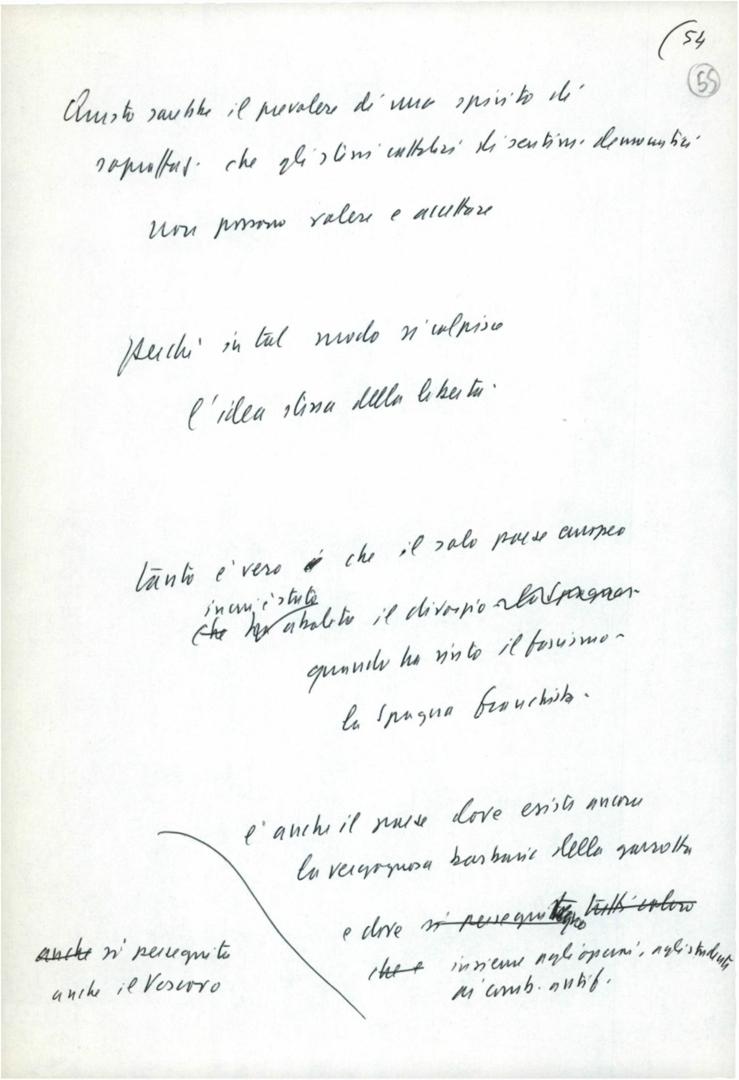 (54
55
Questo sarebbe il prevalere di uno spirito di
sopraffaz. che gli stessi cattolici di sentim. democratici
non possono volere e accettare
perchè in tal modo si colpisce
l'idea stessa della libertà.
tanto è vero che il solo paese europeo
in cui è stato
che ha abolito il divorzio - la Spagna -
quando ha vinto il fascismo -
la Spagna franchista.
è anche il paese dove esiste ancora
la vergognosa barbarie della garrotta
e dove si perseguitano tutti coloro
che e insieme agli operai, agli studenti
ai comb. antif.
anche si perseguita
anche il Vescovo